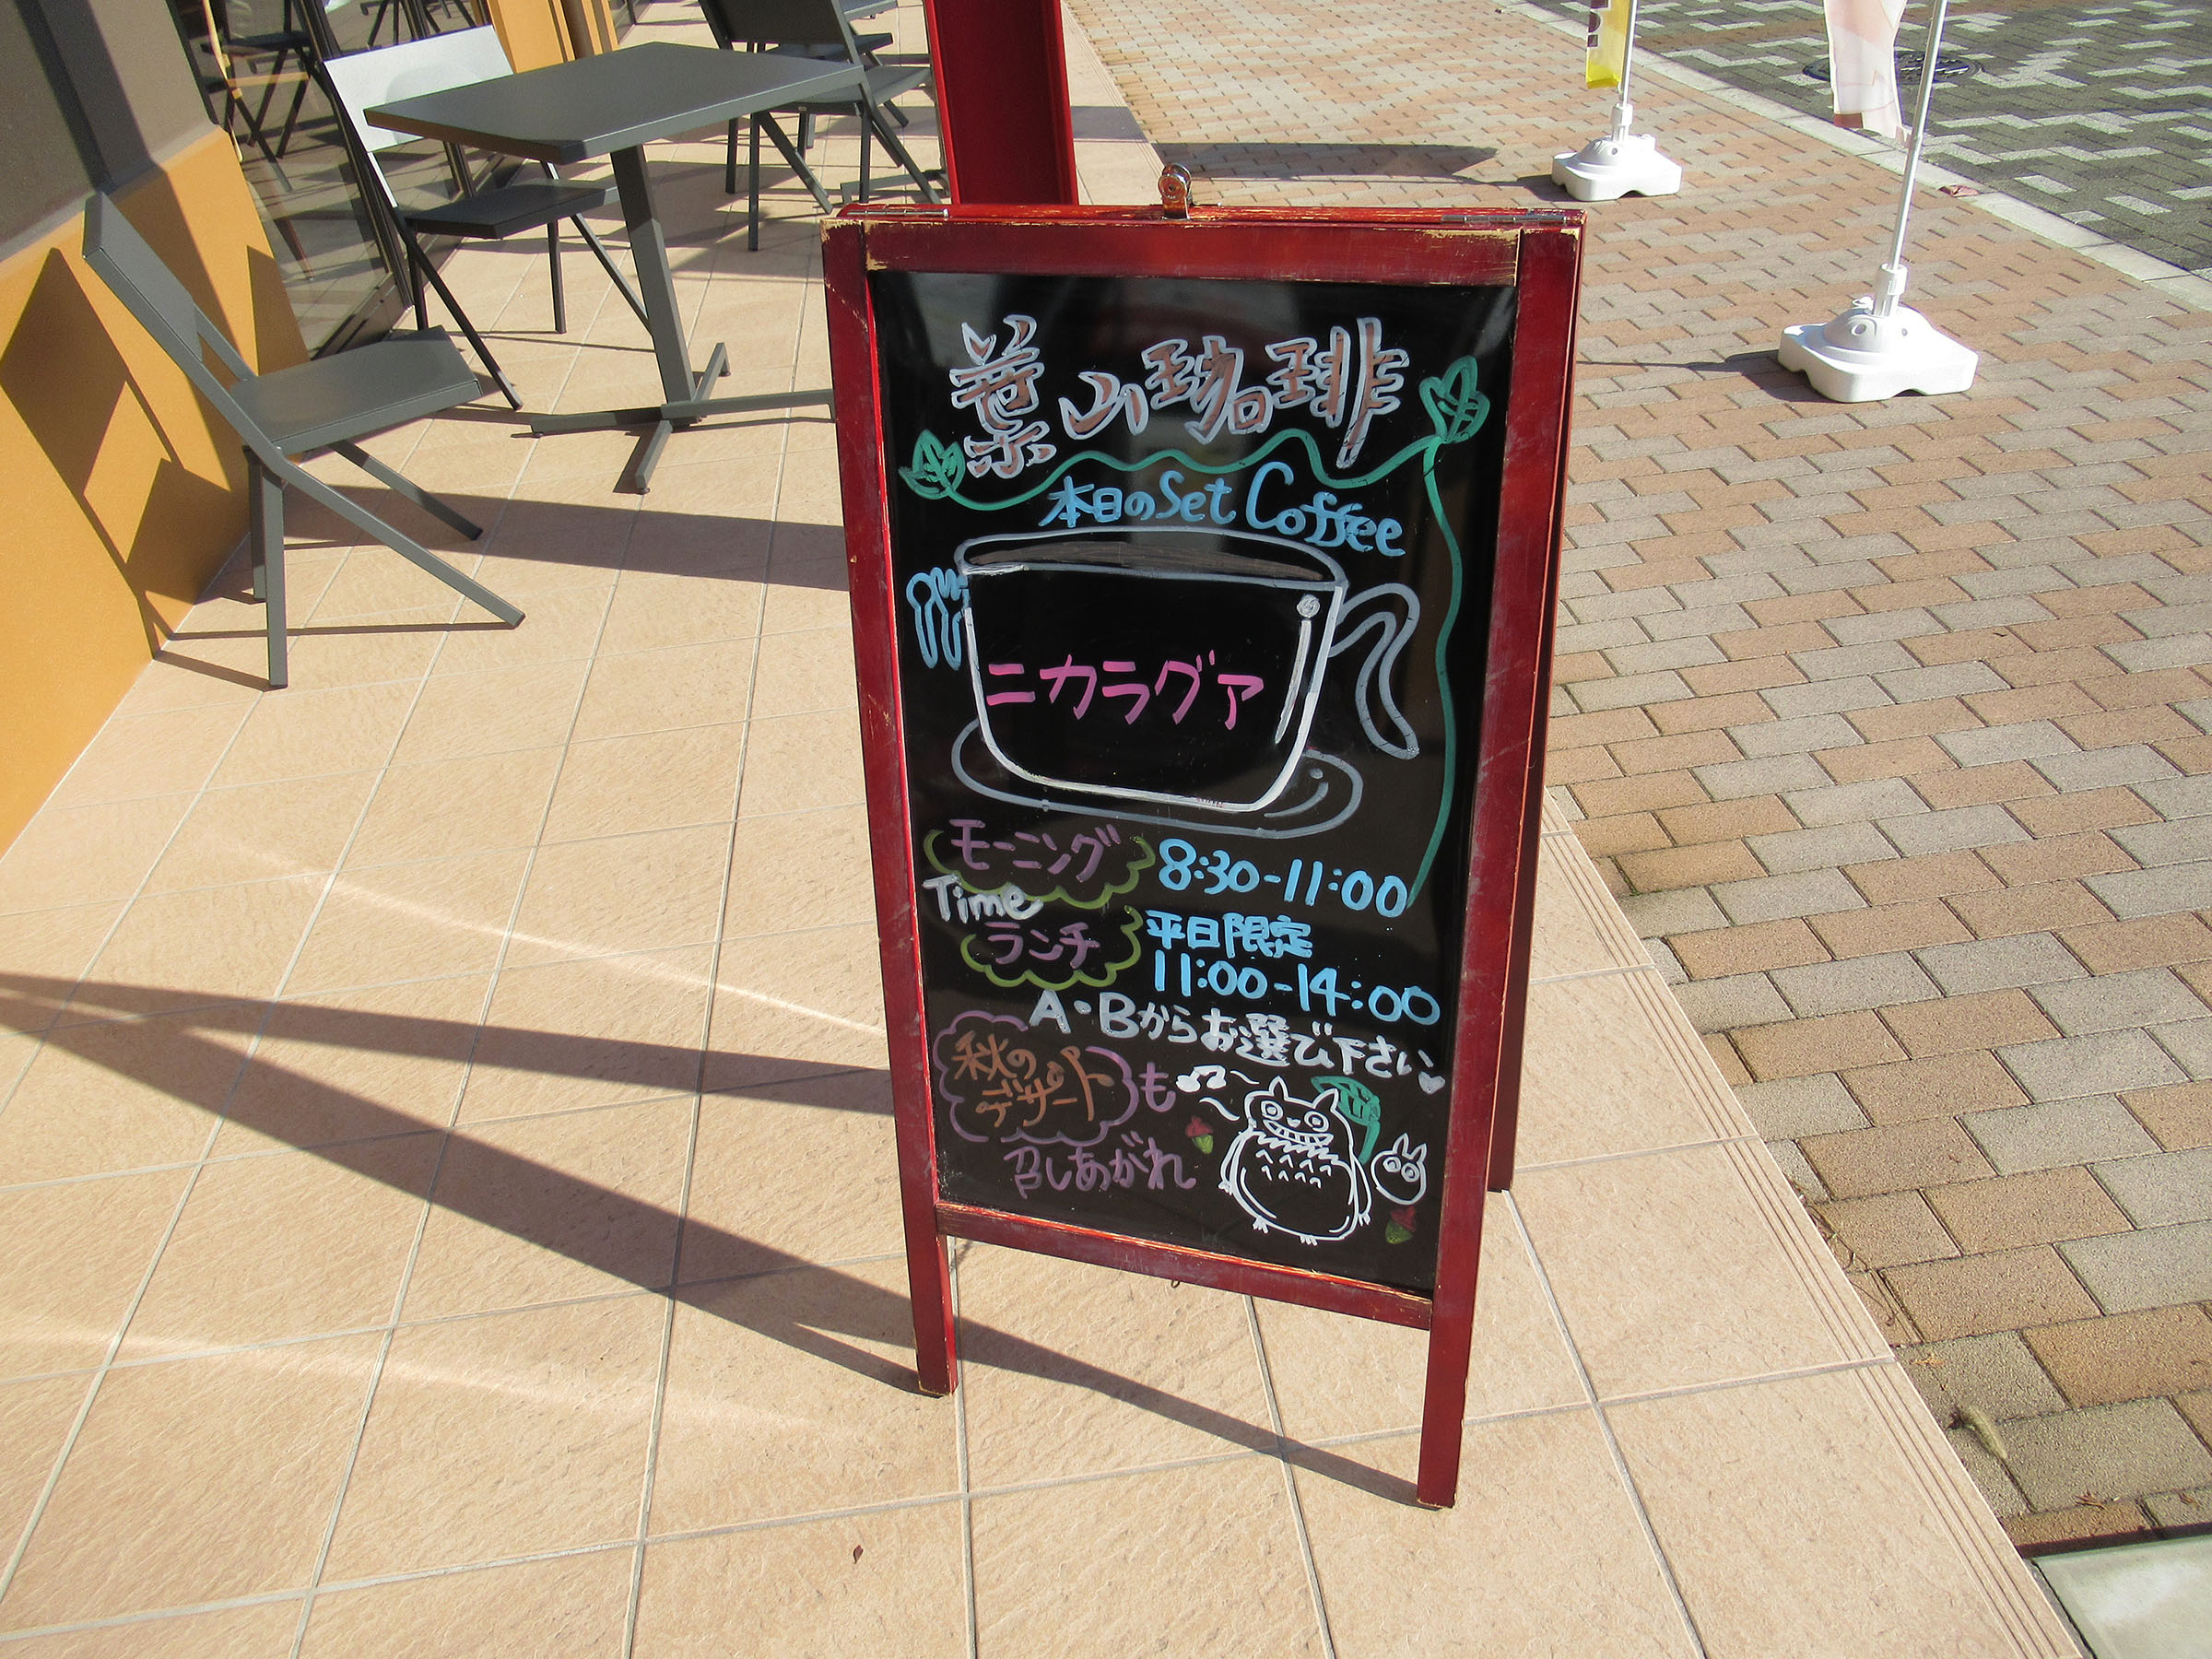 葉山珈琲
本日のSet Coffee
ニカラグァ
モーニング 8:30-11:00
Time
ランチ 平日限定
11:00-14:00
A・Bからお選び下さい
秋の
デザート
も
召しあがれ